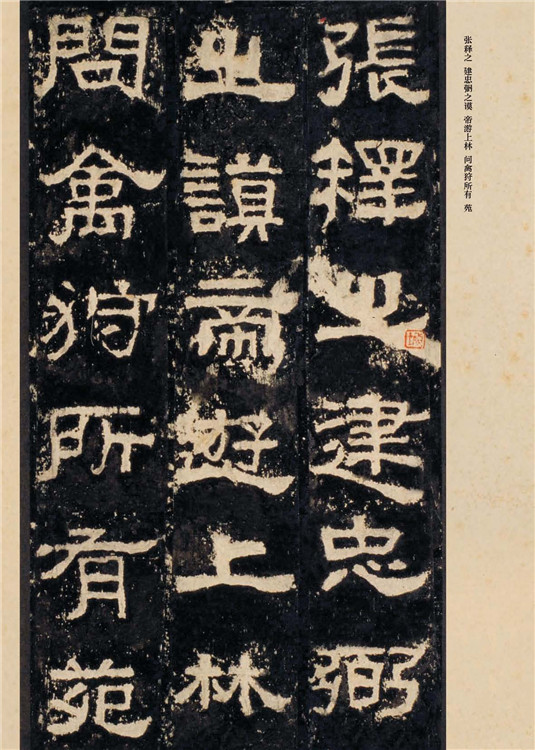 张释之 建忠弼之谟 帝游上林 问禽狩所有 苑
張釋之建忠弼
之謨帝遊上林
問禽狩所有苑